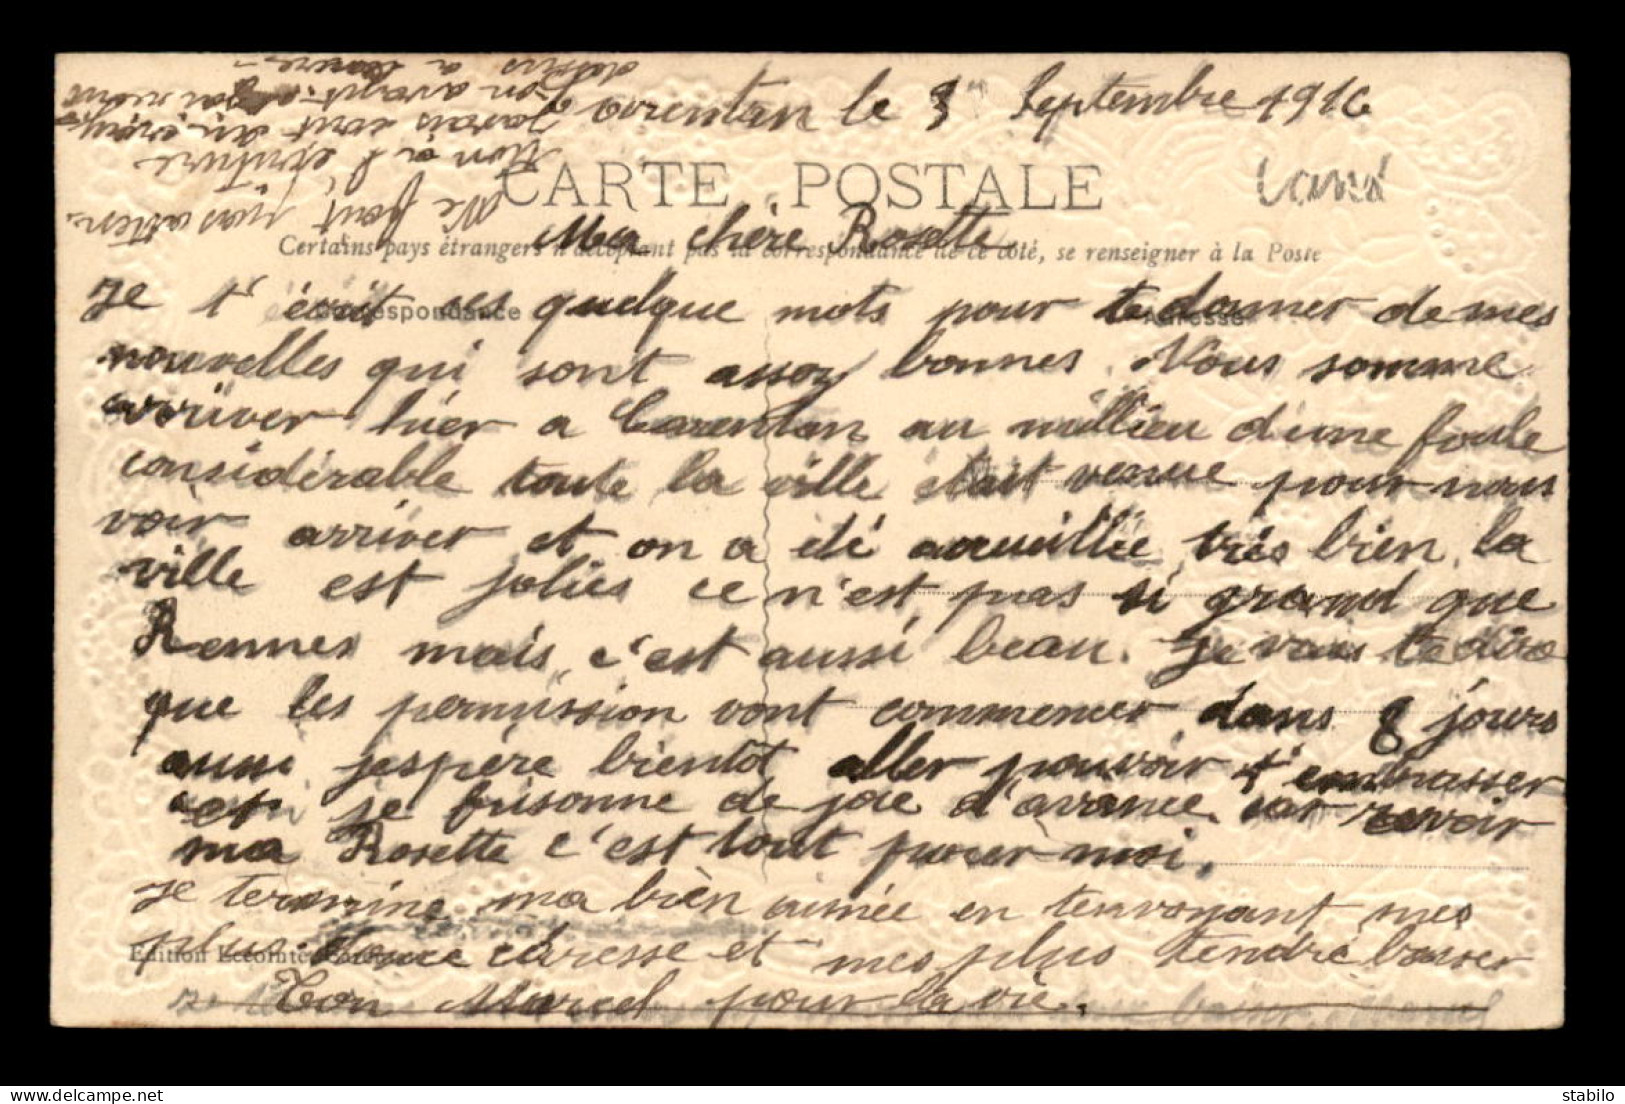 Carentan le 3 Septembre 1916
CARTE POSTALE
Ma chère Rosette
Certains pays étrangers n'acceptant pas la correspondance de ce côté, se renseigner à la Poste
Correspondance
Adresse
Je t'écrit ces quelque mots pour te donner de mes
nouvelles qui sont assez bonnes. Nous somme
arriver hier a Carentan au millieu d'une foule
considérable toute la ville était venue pour nous
voir arriver et on a été accueillie très bien, la
ville est jolies ce n'est pas si grand que
Rennes mais c'est aussi beau. Je vais te dire
que les permission vont commencer dans 8 jours
aussi jespère bientôt aller pouvoir t'embrasser
et je frisonne de joie d'avance car revoir
ma Rosette c'est tout pour moi.
Je termine ma bien aimée en tenvoyant mes
plus douce caresse et mes plus tendre baiser
Ton Marcel pour la vie.
Edition Lecointe
Ne fait pas atten-
tion a l'écriture
javais cent
on avait
dessus a
delcampe.net
stabilo